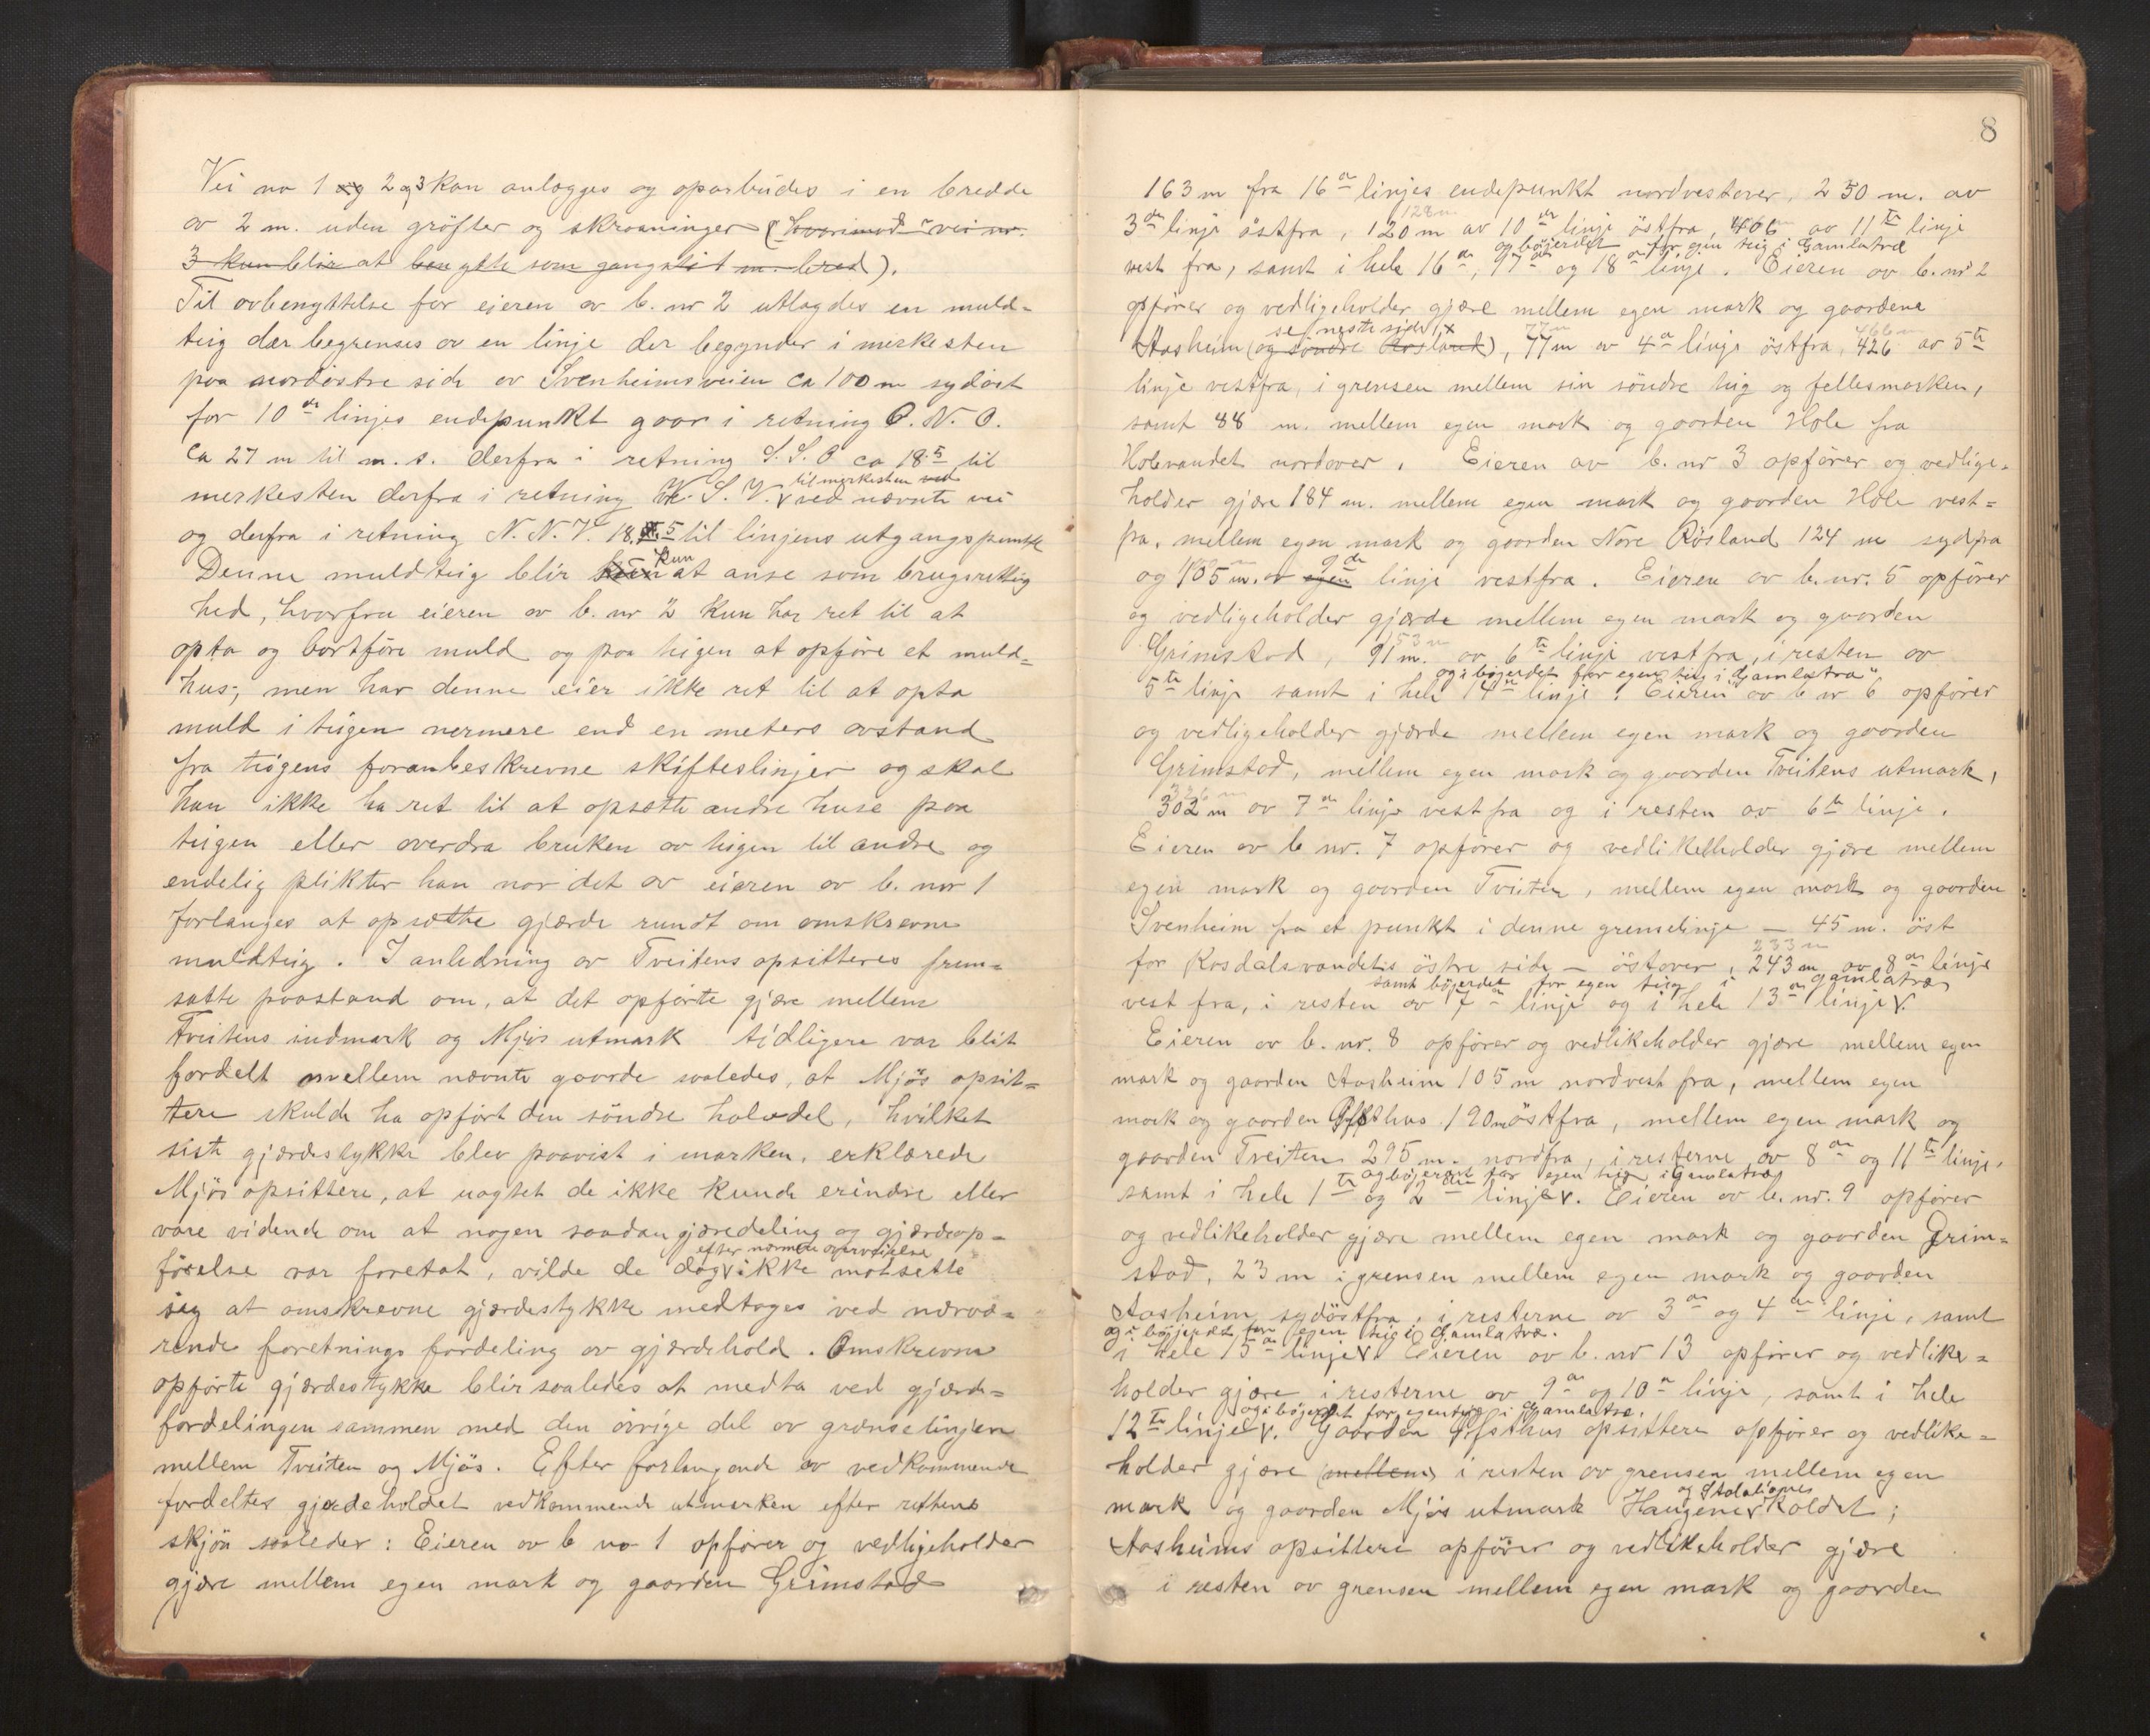 Vei no 1 og 2 og 3 kan anlægges og oparbeides i en bredde
av 2 m. uden gröfter og skraaninger (hvorimod vei nr.
3 kun blir at benytte som gangsti 1 m. bred).
Til avbenyttelse for eieren av b. nr 2 utlagdes en muld-
teig der begrenses av en linje der begynder i merkesten
paa nordöstre side av Svenheimsveien ca 100 m sydöst
for 10 de linjes endepunkt gaar i retning Ö. N. Ö.
ca 27 m til m. s. derfra i retning S. S. Ö ca 18.5 til
til merkesten ved
merkesten derfra i retning V. S. V. v ved nævnte vei
og derfra i retning N. N. V. 18.5 til linjens utgangspunkt
kun
Denne muldteig blir at anse som brugsrettig
hed, hvorfra eieren av b. nr 2 kun har ret til at
opta og bortföre muld og paa teigen at opföre et muld-
hus; men har denne eier ikke ret til at opta
muld i teigen nermere end en meters avstand
fra teigens foranbeskrevne skifteslinjer og skal
han ikke ha ret til at opsætte andre huse paa
teigen eller overdra bruken av teigen til andre og
endelig plikter han naar det av eieren av b. nr 1
forlanges at opsætte gjærde rundt om omskrevne
muldteig. I anledning av Tveitens opsitteres frem-
satte paastand om, at det opförte gjære mellem
Tveitens indmark og Mjös utmark tidligere var blit
fordelt mellem nævnte gaarde saaledes, at Mjös opsit-
tere skulde ha opfört den söndre halvdel, hvilket
siste gjærdestykke blev paavist i marken, erklærede
Mjös opsittere, at uagtet de ikke kunde erindre eller
være vidende om at nogen saadan gjæredeling og gjærdeop-
efter nærmere overveielse
förelse var foretat, vilde de dog v ikke motsette
sig at omskrevne gjærdestykke medtages ved nærvæ-
rende foretnings fordeling av gjærdehold. Omskrevne
opförte gjærdestykke blir saaledes at medta ved gjærde-
fordelingen sammen med den övrige del av grænselinjen
mellem Tveiten og Mjös. Efter forlangende av vedkommende
fordeltes gjærdeholdet vedkommende utmarken efter rettens
skjön saaledes: Eieren av b no 1 opförer og vedligeholder
gjære mellem egen mark og gaarden Grimstad
8
163 m fra 16 de linjes endepunkt nordvestover, 250 m. av
128 m
3 de linje östfra, 120 m av 10 de linje östfra, 406 av 11 te linje
og böjerdet for egen teig i Gamletræ
vest fra, samt i hele 16 de, 17 de og 18 de linje. Eieren av b. nr 2
opförer og vedligeholder gjære mellem egen mark og gaardene
se neste side x 77 m 466 m
Aasheim (og söndre Rösland), 77 m av 4 de linje östfra, 426 av 5 te
linje vestfra, i grensen mellem sin söndre teig og fellesmarken,
samt 88 m. mellem egen mark og gaarden Hole fra
Holevandet nordover. Eieren av b. nr 3 opförer og vedlige-
holder gjære 184 m. mellem egen mark og gaarden Hole vest-
fra, mellem egen mark og gaarden Nore Rösland 124 m sydfra
9 de
og 105 m. av egen linje vestfra. Eieren av b. nr. 5 opförer
og vedligeholder gjærde mellem egen mark og gaarden
53 m
Grimstad, 91 m. av 6 te linje vestfra, i resten av
og i böjerdet for egen teig i "Gamletræ"
5 te linje samt i hele 14 de linje. Eieren av b nr 6 opförer
og vedligeholder gjærde mellem egen mark og gaarden
Grimstad, mellem egen mark og gaarden Tveitens utmark,
326 m
302 m av 7 de linje vest fra og i resten av 6 te linje.
Eieren av b nr. 7 opförer og vedlikeholder gjære mellem
egen mark og gaarden Tveiten, mellem egen mark og gaarden
Svenheim fra et punkt i denne grenselinje – 45 m. öst
233 m
for Rosdalsvandets östre side – östover, 243 m av 8 de linje
samt böjerdet for egen teig i gamletræ
vest fra, i resten av 7 de linje og i hele 13 de linje v.
Eieren av b. nr. 8 opförer og vedlikeholder gjære mellem egen
mark og gaarden Aasheim 105 m nordvest fra, mellem egen
mark og gaarden Øfsthus 190 m östfra, mellem egen mark og
gaarden Tveiten 295 m. nordfra, i resterne av 8 de og 11 te linje,
og böjerdet for egen teig i Gamletræ
samt i hele 1 te og 2 den linje v. Eieren av b. nr. 9 opförer
og vedlikeholder gjære mellem egen mark og gaarden Grim-
stad, 23 m i grensen mellem egen mark og gaarden
Aasheim sydöstfra, i resterne av 3 de og 4 de linje, samt
og i böjerdet for egen teig i Gamletræ.
i hele 15 de linje v. Eieren av b. nr 13 opförer og vedlike-
holder gjære i resterne av 9 de og 10 de linje, samt i hele
og i böjerdet for egen teig i Gamletræ.
12 te linje v. Gaarden Øfsthus opsittere opförer og vedlike-
holder gjære (mellem) i resten av grensen mellem egen
mark og gaarden Mjös utmark Haugene v
Aasheims opsittere opförer og vedlikeholder gjære
i resten av grensen mellem egen mark og gaarden